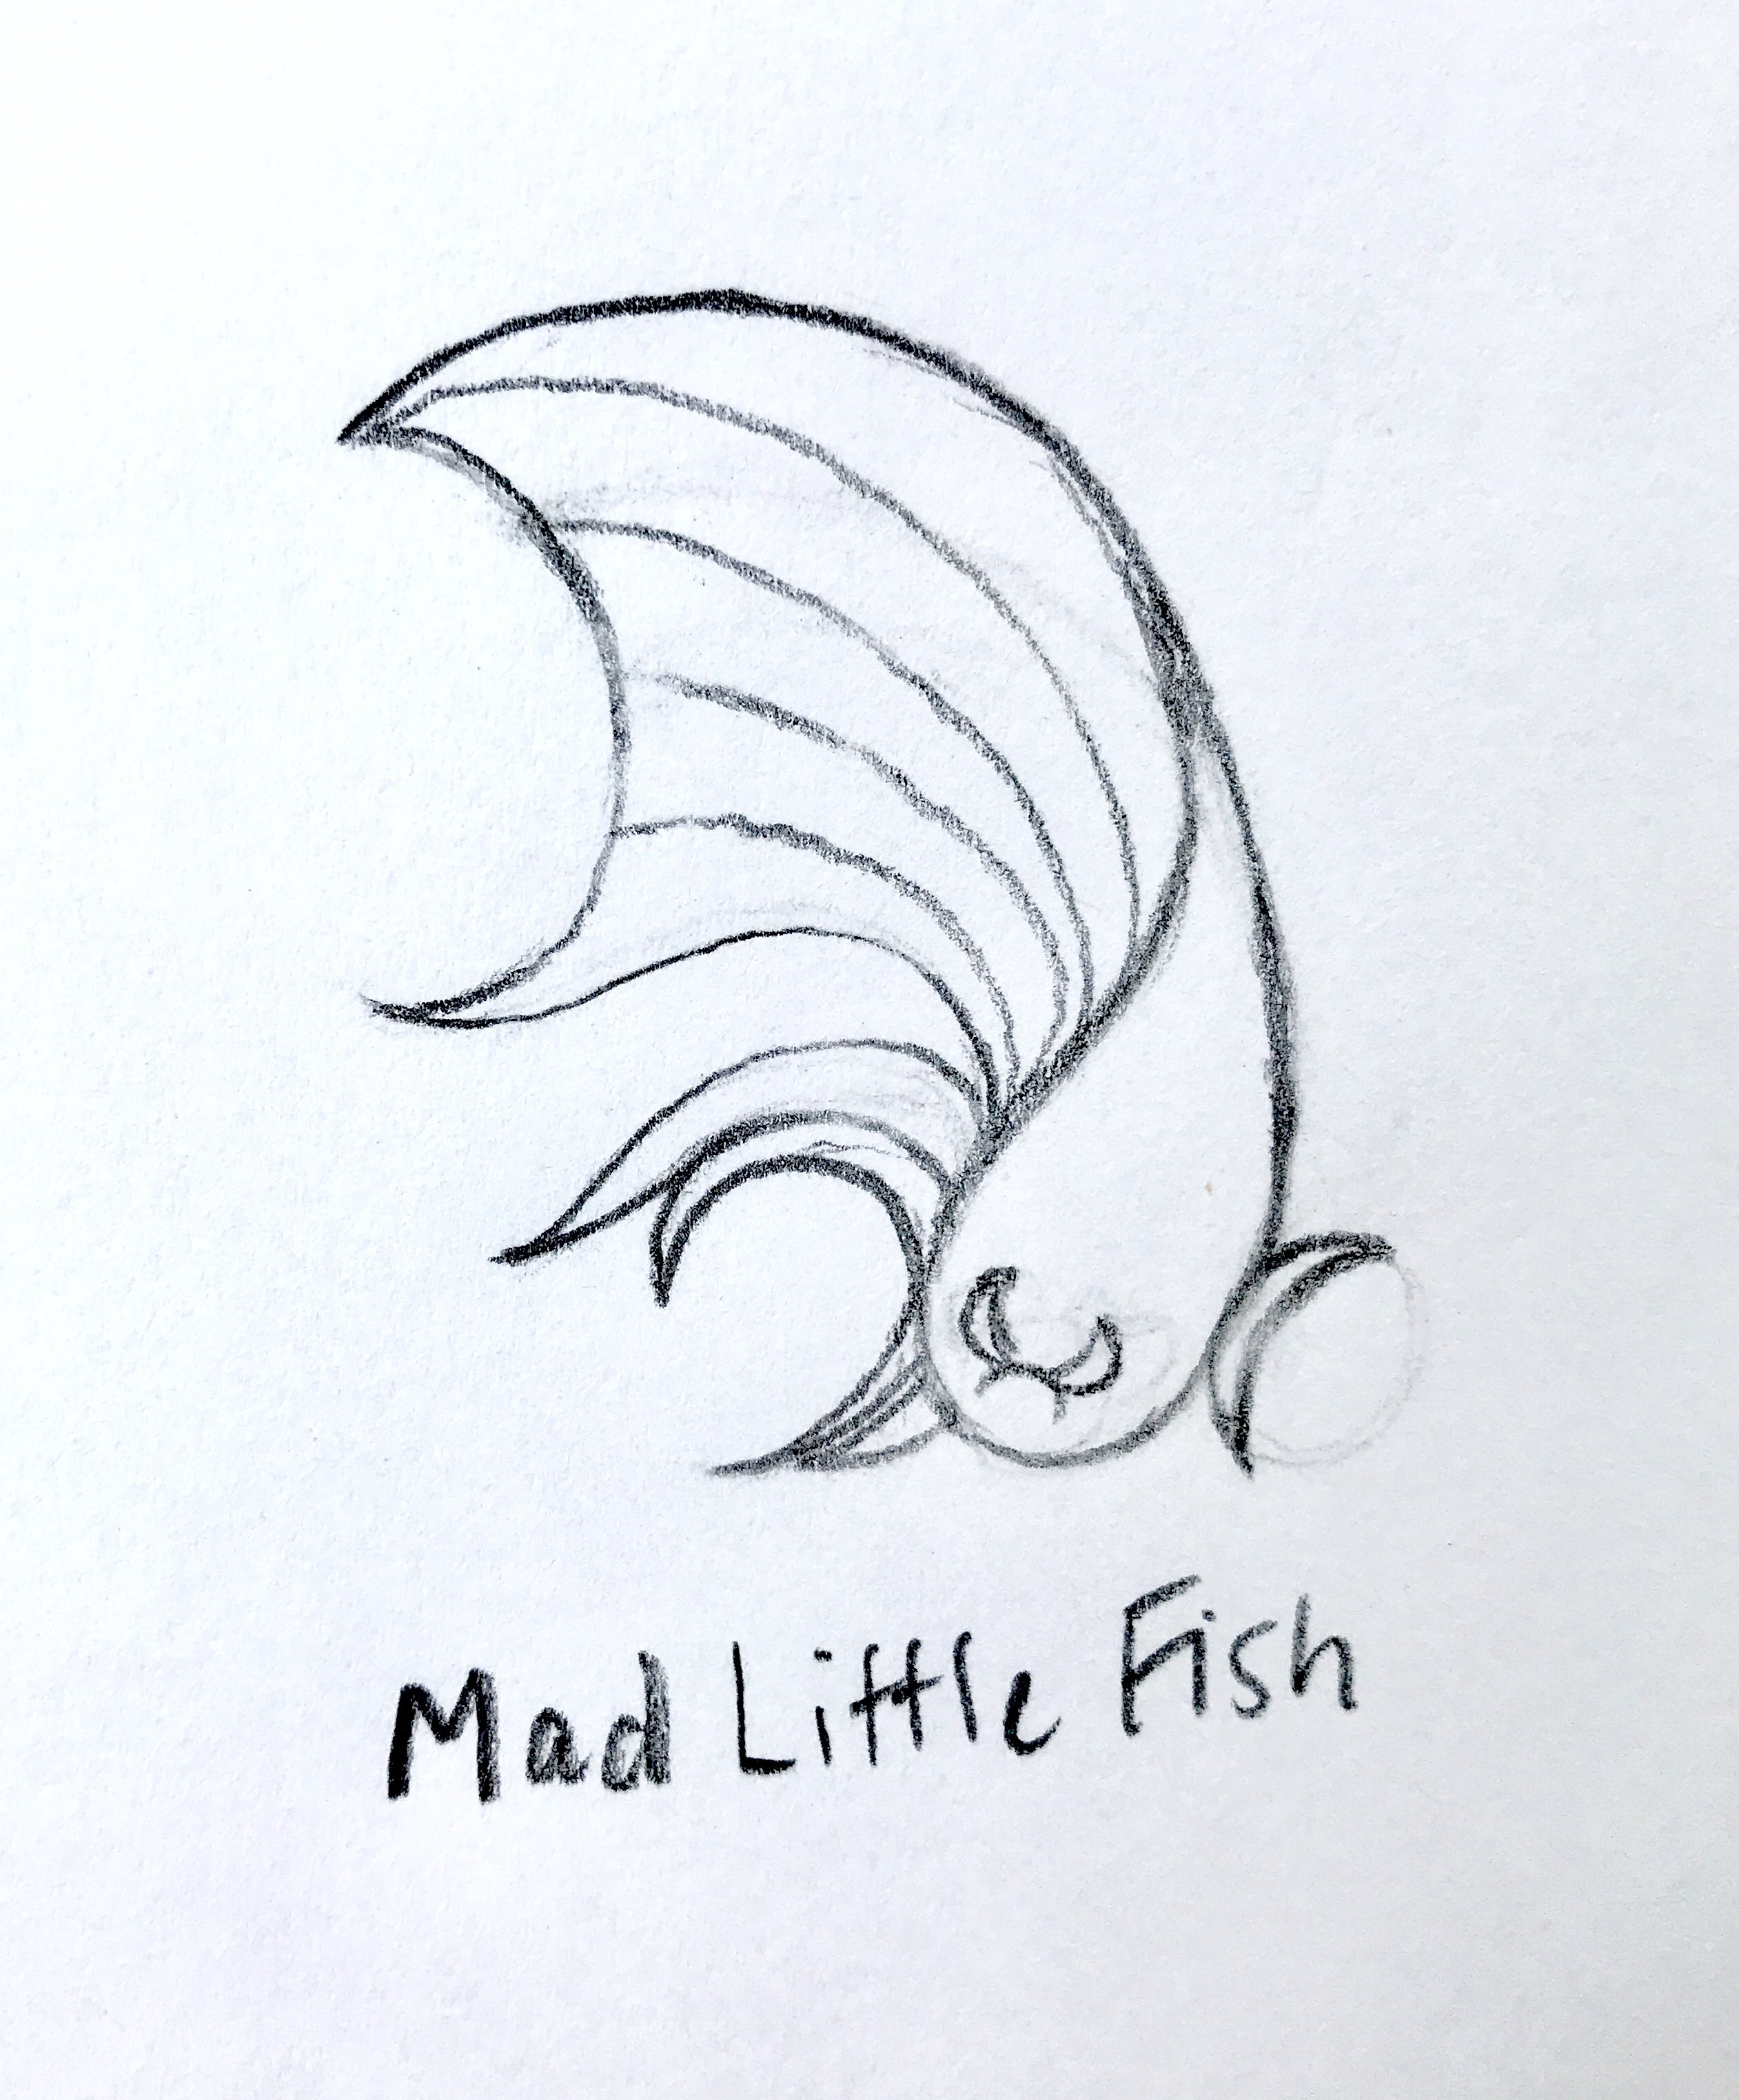 Mad Little Fish